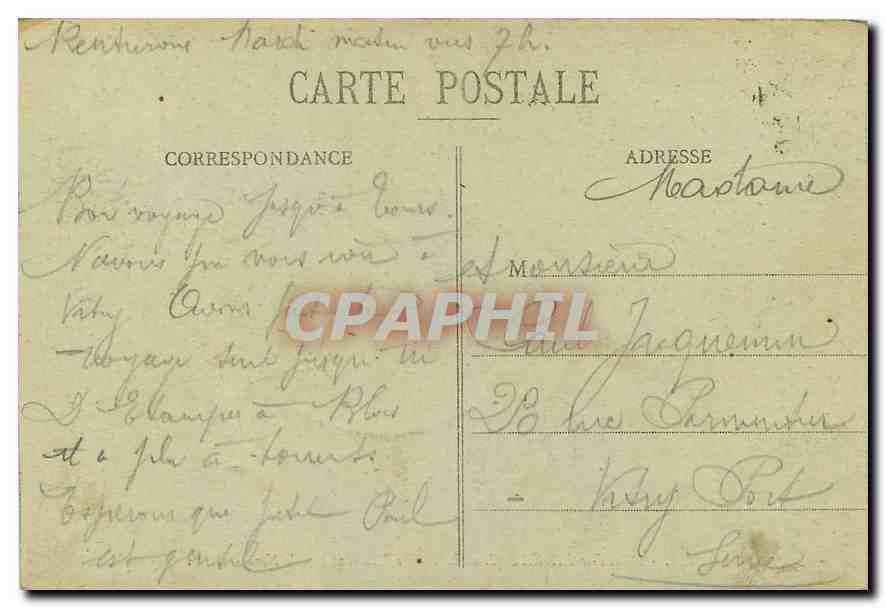 Rentrerons Mardi matin vers 7 h.
CARTE POSTALE
CORRESPONDANCE
ADRESSE
Bon voyage jusqu'à Tours.
N'avons pu vous voir à
Vitry Avons fait
voyage seul jusqu'
D'Etampes à Blois
il a plu à torrents
Esperons que petit Paul
est gentil
Madame
et Monsieur
Paul Jacquemin
28 rue Parmentier
Vitry Port
Seine
CPAPHIL